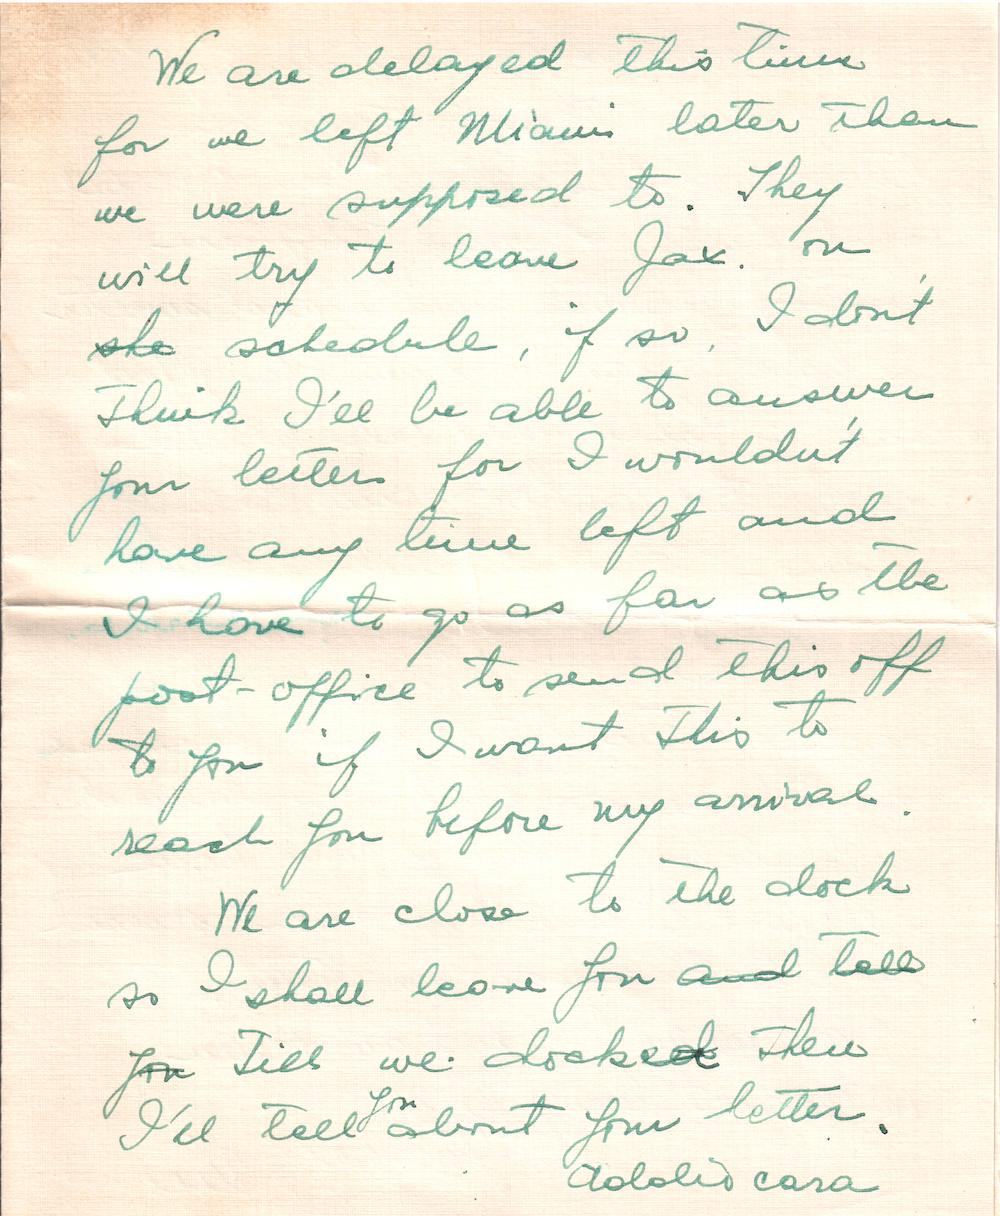 We are delayed this time
for we left Miami later than
we were supposed to. They
will try to leave Jax. on
she schedule, if so, I don't
think I'll be able to answer
your letters for I wouldn't
have any time left and
I have to go as far as the
post-office to send this off
to you if I want this to
reach you before my arrival.
We are close to the dock
so I shall leave you and tell
you till we docked then
I'll tell you about your letter.
Addio cara